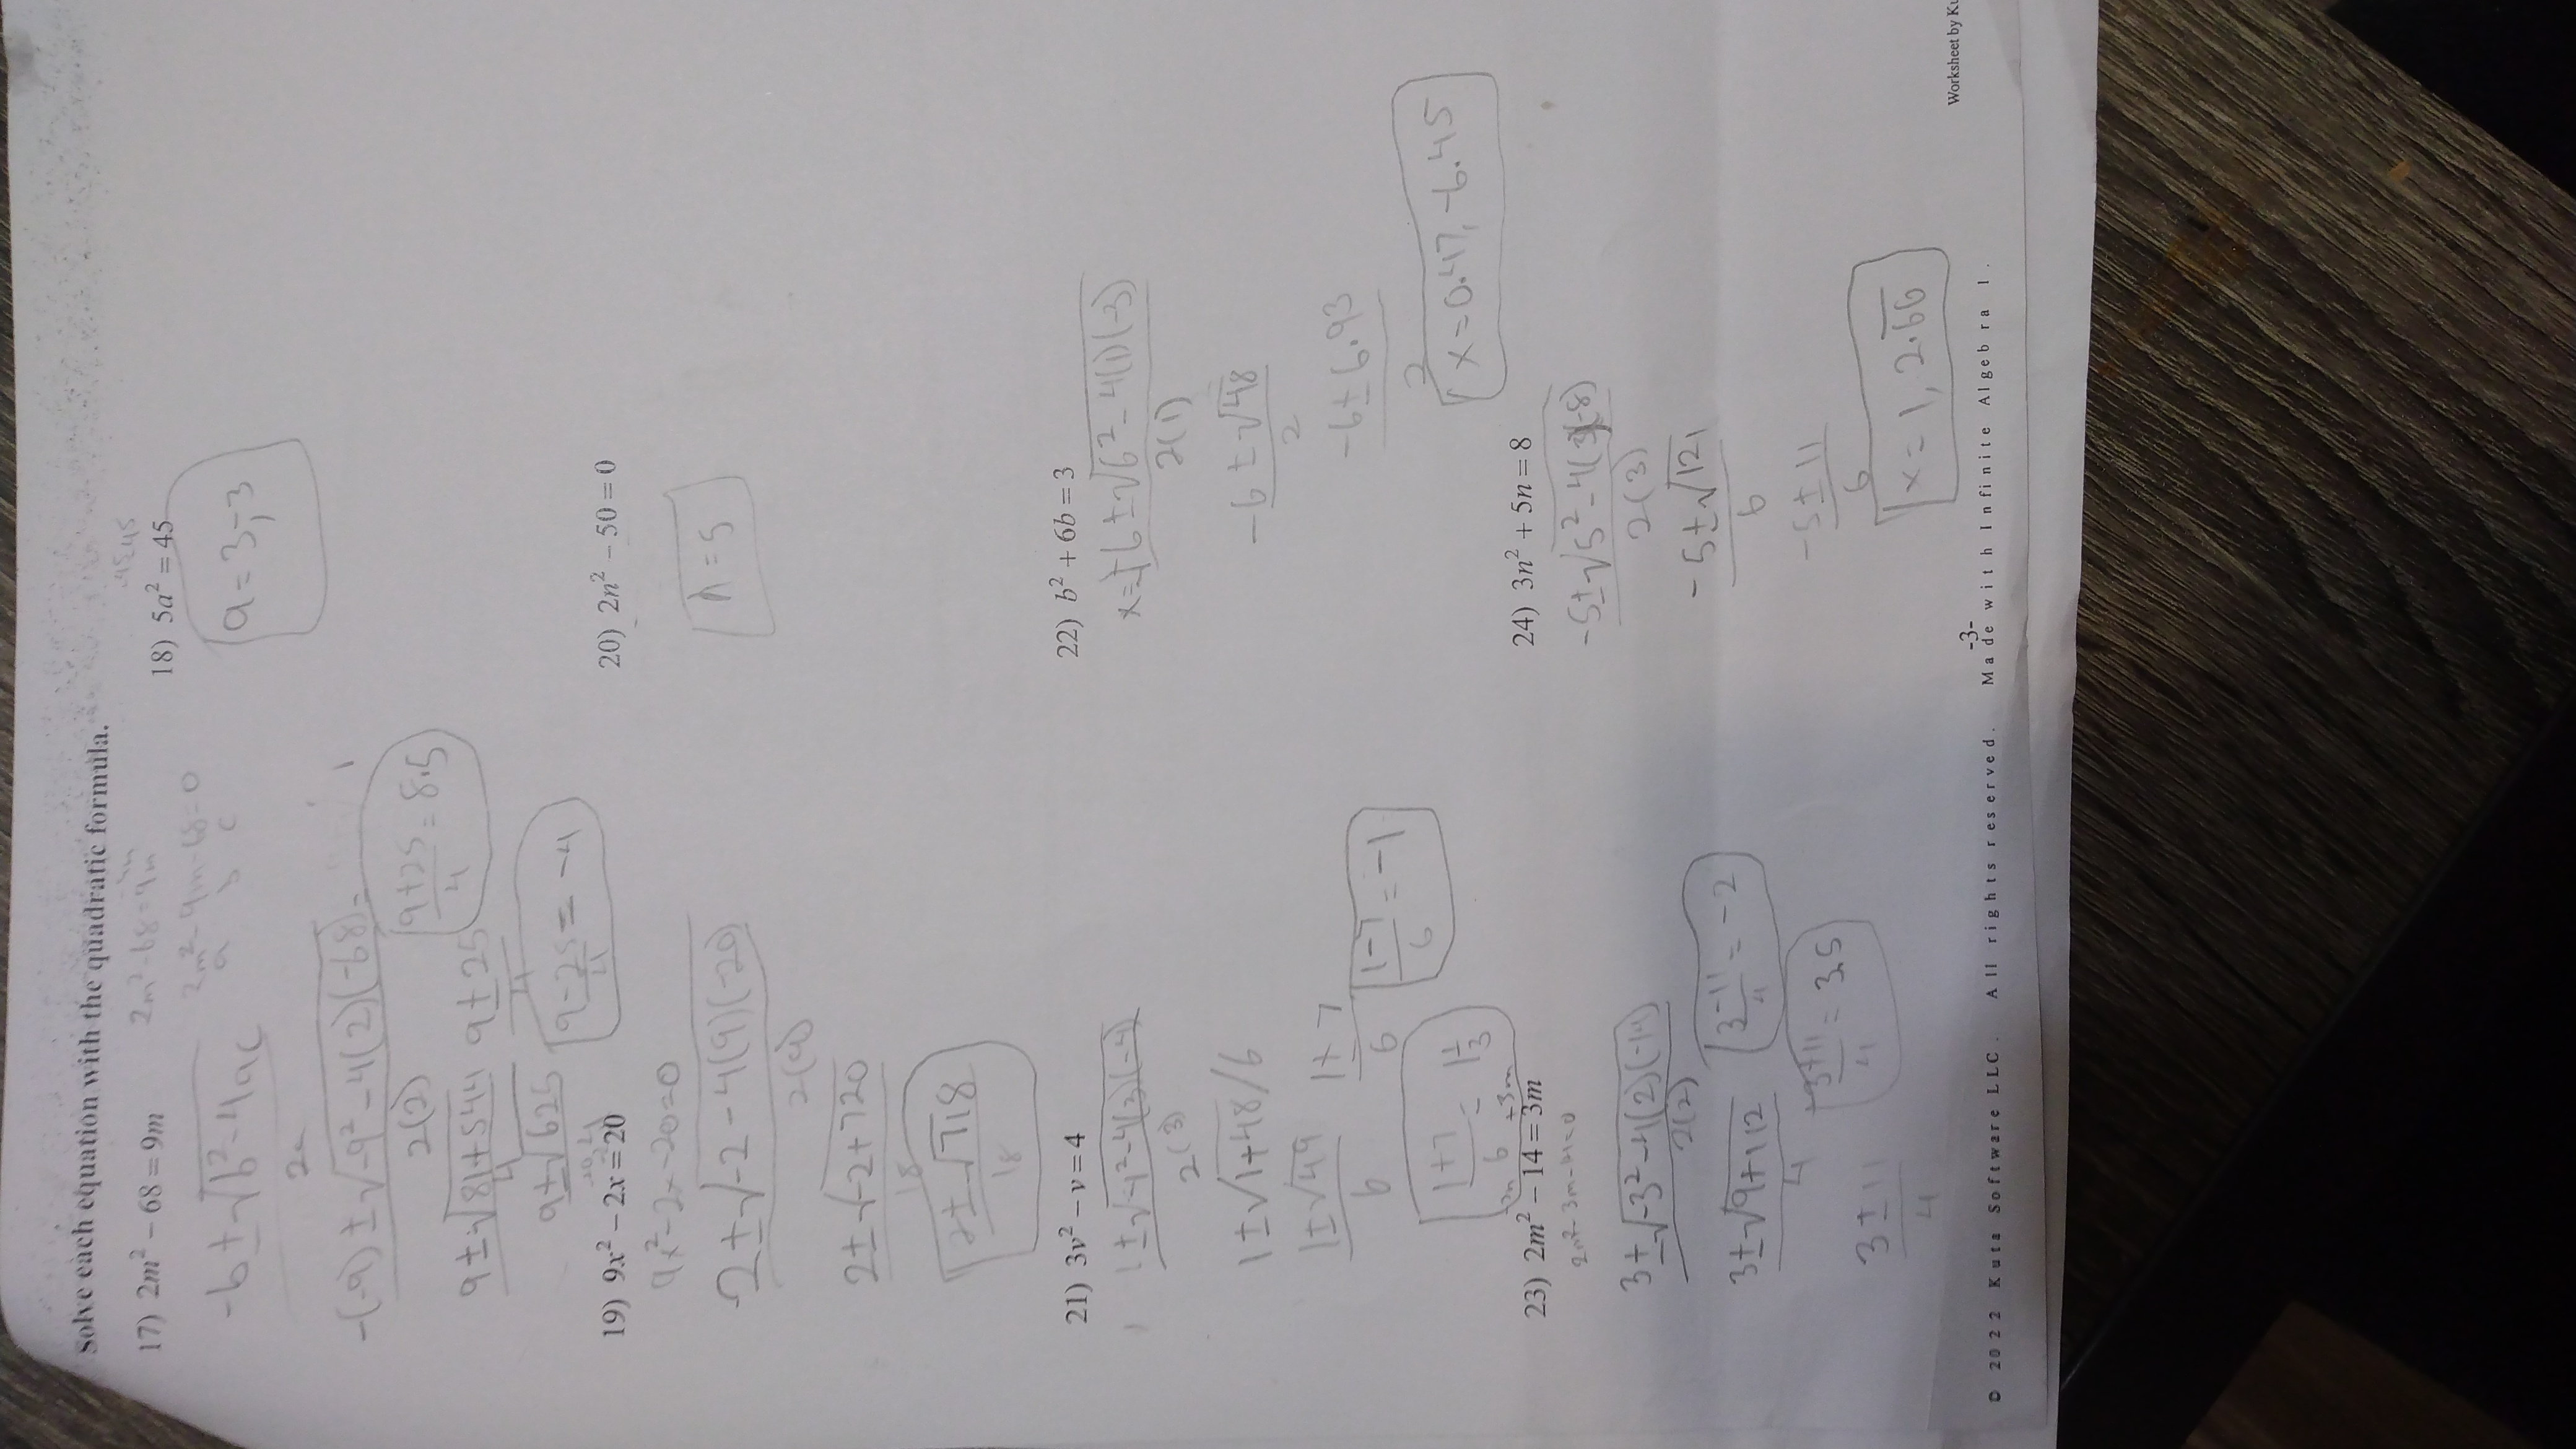 Solve each equation with the quadratic formula.
17) 2m² − 68 = 9m
2m²-68=9m
2m²-9m-68=0
a b c
-b±√b²-4ac
2a
-(-9)±√-9²-4(2)(-68)
2(2)
9±√81+544
4
9±25
4
9+25
4
=8.5
9±√625
4
9-25
4
=-4
18) 5a² = 45
a=3,-3
19) 9x² − 2x = 20
9x²-2x-20=0
-2±√-2-4(9)(-20)
2(9)
2±√-2+720
18
2±√718
18
20) 2n² − 50 = 0
n=5
21) 3v² − v = 4
1±√-1²-4(3)(-4)
2(3)
1±√1+48/6
1±√49
6
1±7
6
1-7
6
=-1
1+7
6
=1⅓
22) b² + 6b = 3
6±√6²-4(1)(-3)
2(1)
-6±√48
2
-6±6.93
2
x=0.47,-6.45
23) 2m² − 14 = 3m
2m²-3m-14=0
3±√-3²-4(2)(-14)
2(2)
3±√9+112
4
3-11
4
=-2
3±11
4
3+11
4
=3.5
24) 3n² + 5n = 8
-5±√5²-4(3)(-8)
2(3)
-5±√121
6
-5±11
6
x=1,2.66
-3-
© 2022 Kuta Software LLC. All rights reserved. Made with Infinite Algebra 1.
Worksheet by Ku